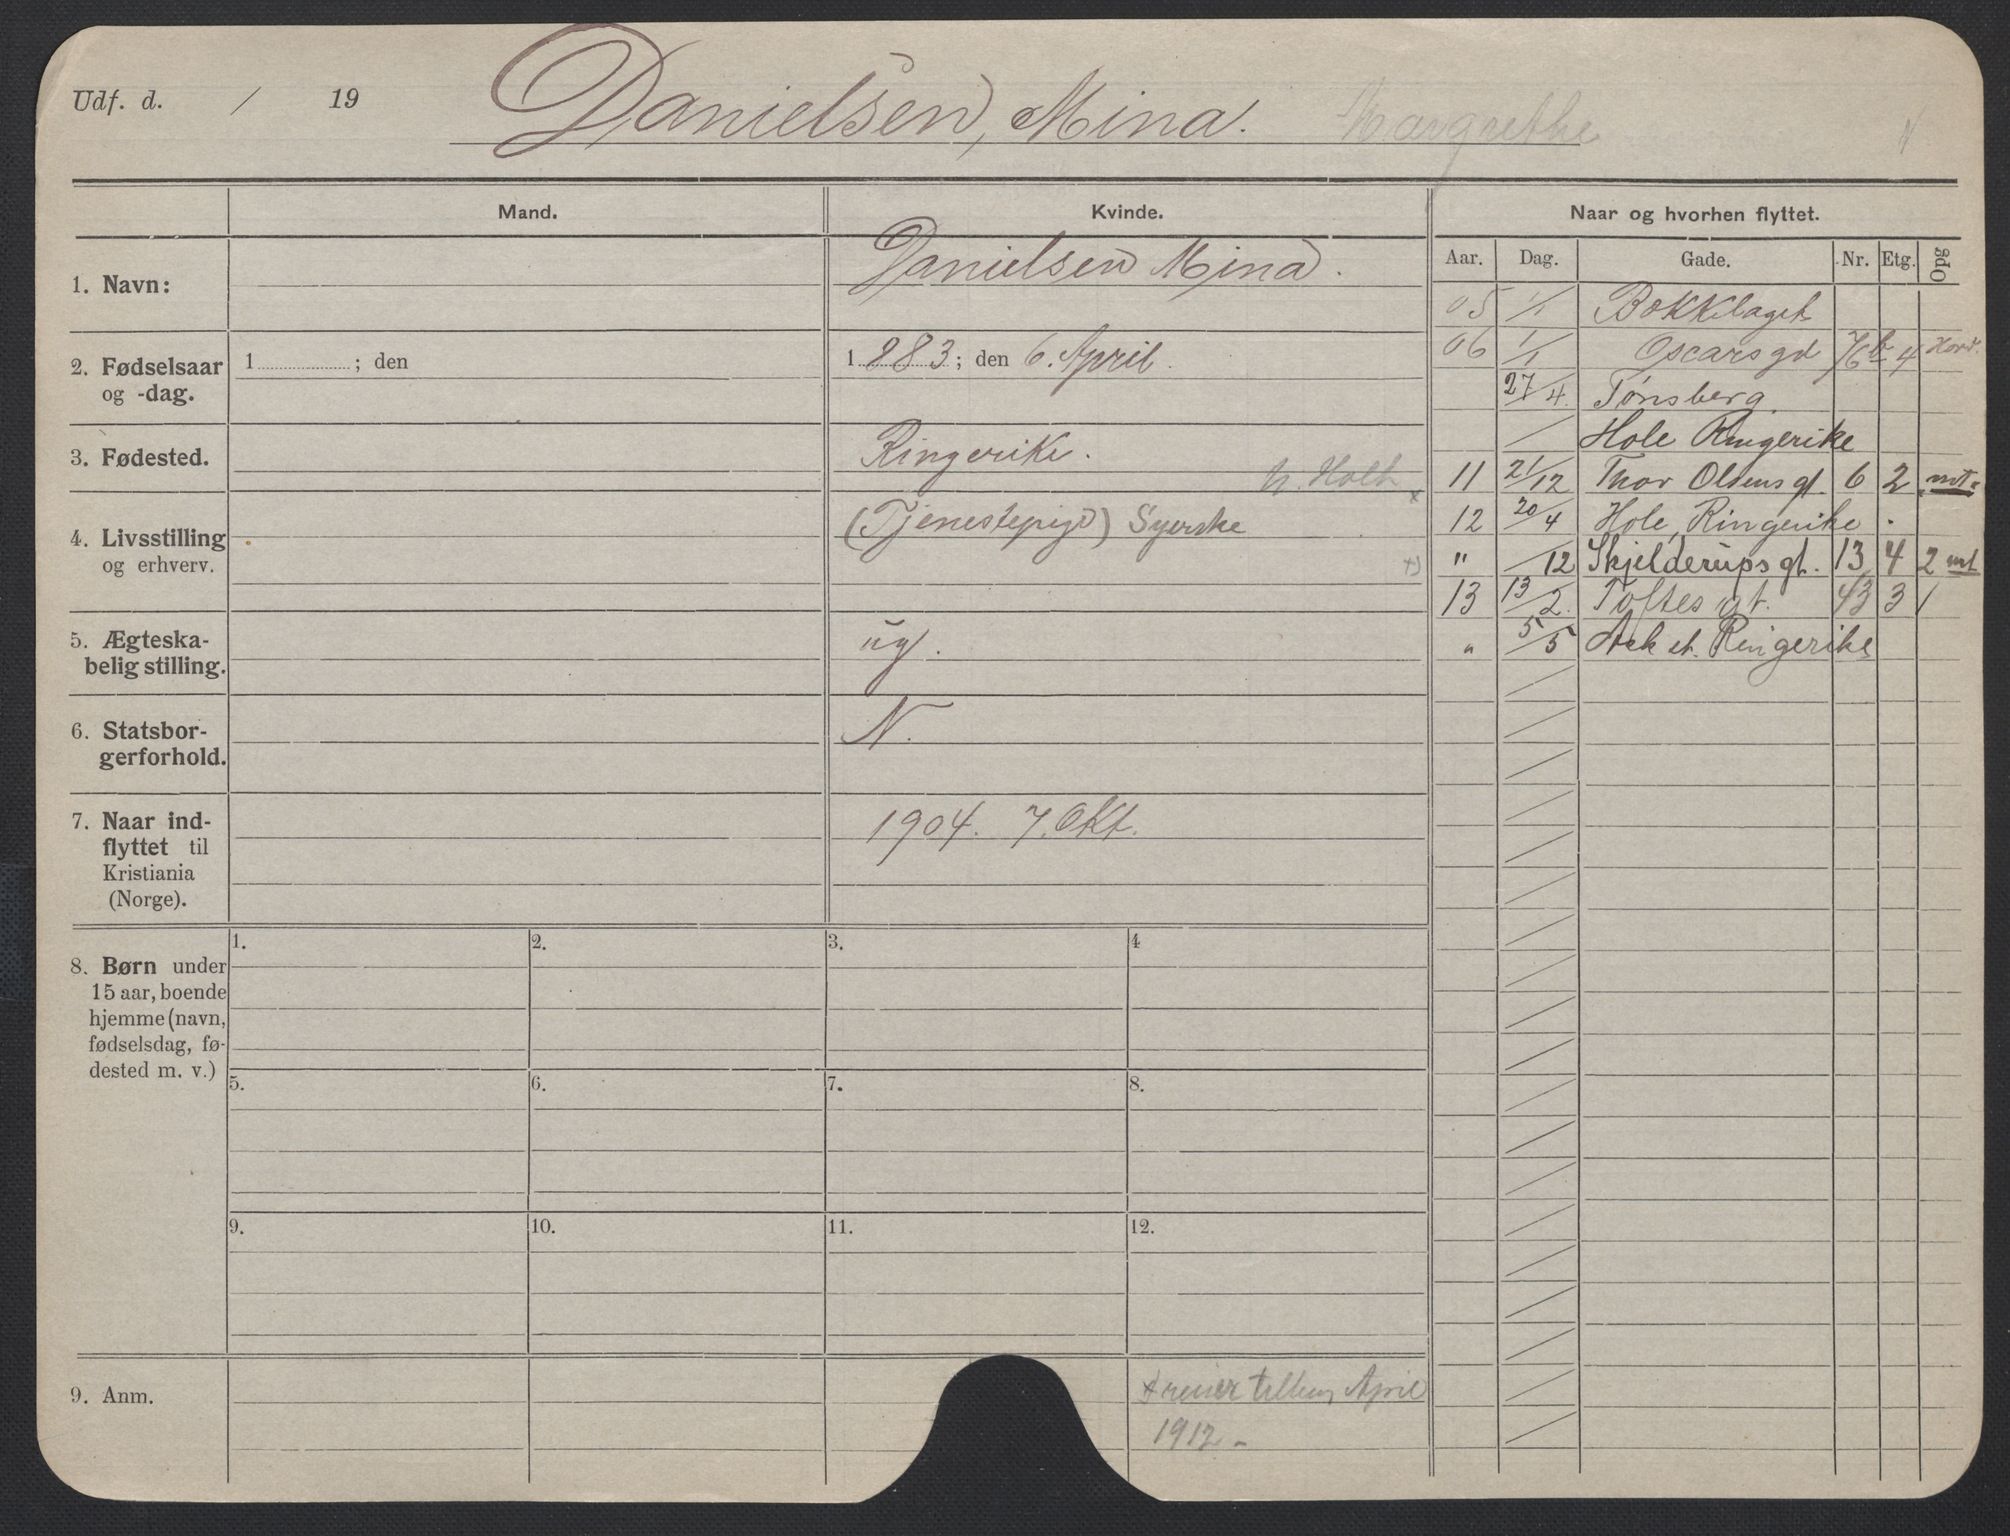 Udf. d. / 19 Danielsen, Mina. Margrethe
Mand. Kvinde. Naar og hvorhen flyttet.
Aar. Dag. Gade. Nr. Etg. Opg
1. Navn: Danielsen Mina.
2. Fødselsaar og -dag. 1 ; den
1883; den 6. April.
3. Fødested. Ringerike. N. Holth
4. Livsstilling og erhverv. (Tjenestepige) Syerske
5. Ægteska-
belig stilling. ug.
6. Statsbor-
gerforhold. N.
7. Naar ind-
flyttet til
Kristiania
(Norge). 1904. 7. Okt.
05 1/1 Bøkkelaget
06 1/1 Oscars gd 76b 4
27/4. Tønsberg
/ Hole Ringerike
11 21/12 Thor Olsens gt. 6 2 mt
12 20/4 Hole, Ringerike.
" /12 Skjelderups gt. 13 4 2 mt
13 13/2. Toftes gt. 43 3 1
" 5/5 Ask st. Ringerike
8. Børn under
15 aar, boende
hjemme (navn,
fødselsdag, fø-
dested m. v.)
1. 2. 3. 4
5. 6. 7. 8.
9. 10. 11. 12.
9. Anm. April
1912 -